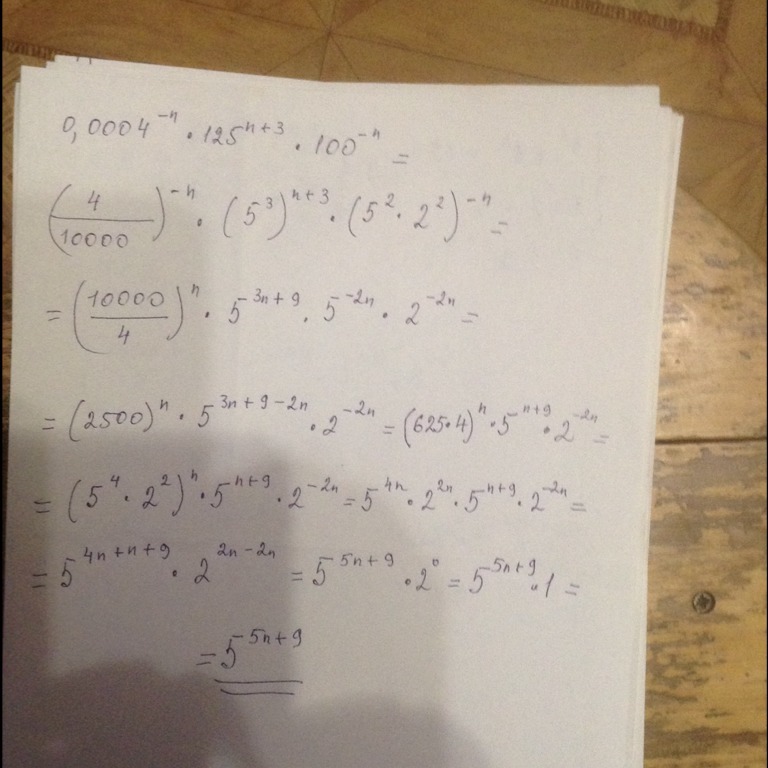 0,0004^{-n} · 125^{n+3} · 100^{-n} =
(4/10000)^{-n} · (5^3)^{n+3} · (5^2 · 2^2)^{-n} =
= (10000/4)^n · 5^{3n+9} · 5^{-2n} · 2^{-2n} =
= (2500)^n · 5^{3n+9-2n} · 2^{-2n} = (625·4)^n · 5^{n+9} · 2^{-2n} =
= (5^4 · 2^2)^n · 5^{n+9} · 2^{-2n} = 5^{4n} · 2^{2n} · 5^{n+9} · 2^{-2n} =
= 5^{4n+n+9} · 2^{2n-2n} = 5^{5n+9} · 2^0 = 5^{5n+9} · 1 =
= 5^{5n+9}